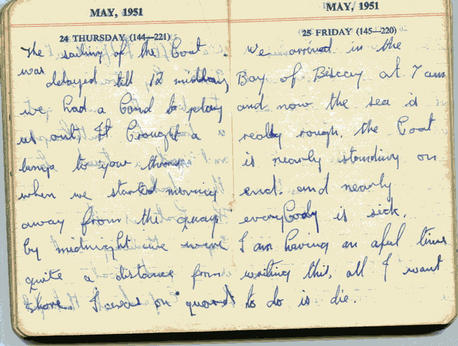 MAY, 1951
24 THURSDAY (144—221)
The sailing of the boat
was delayed till 12 midday
we had a band to play
us out. It brought a
lump to your throat
when we started moving
away from the quay
by midnight we were
quite a distance from
shore I was on guard
MAY, 1951
25 FRIDAY (145—220)
We arrived in the
Bay of Biscay at 7 am
and now the sea is
really rough, the boat
is nearly standing on
end. and nearly
everybody is sick.
I am having an aful time
writing this, all I want
to do is die.